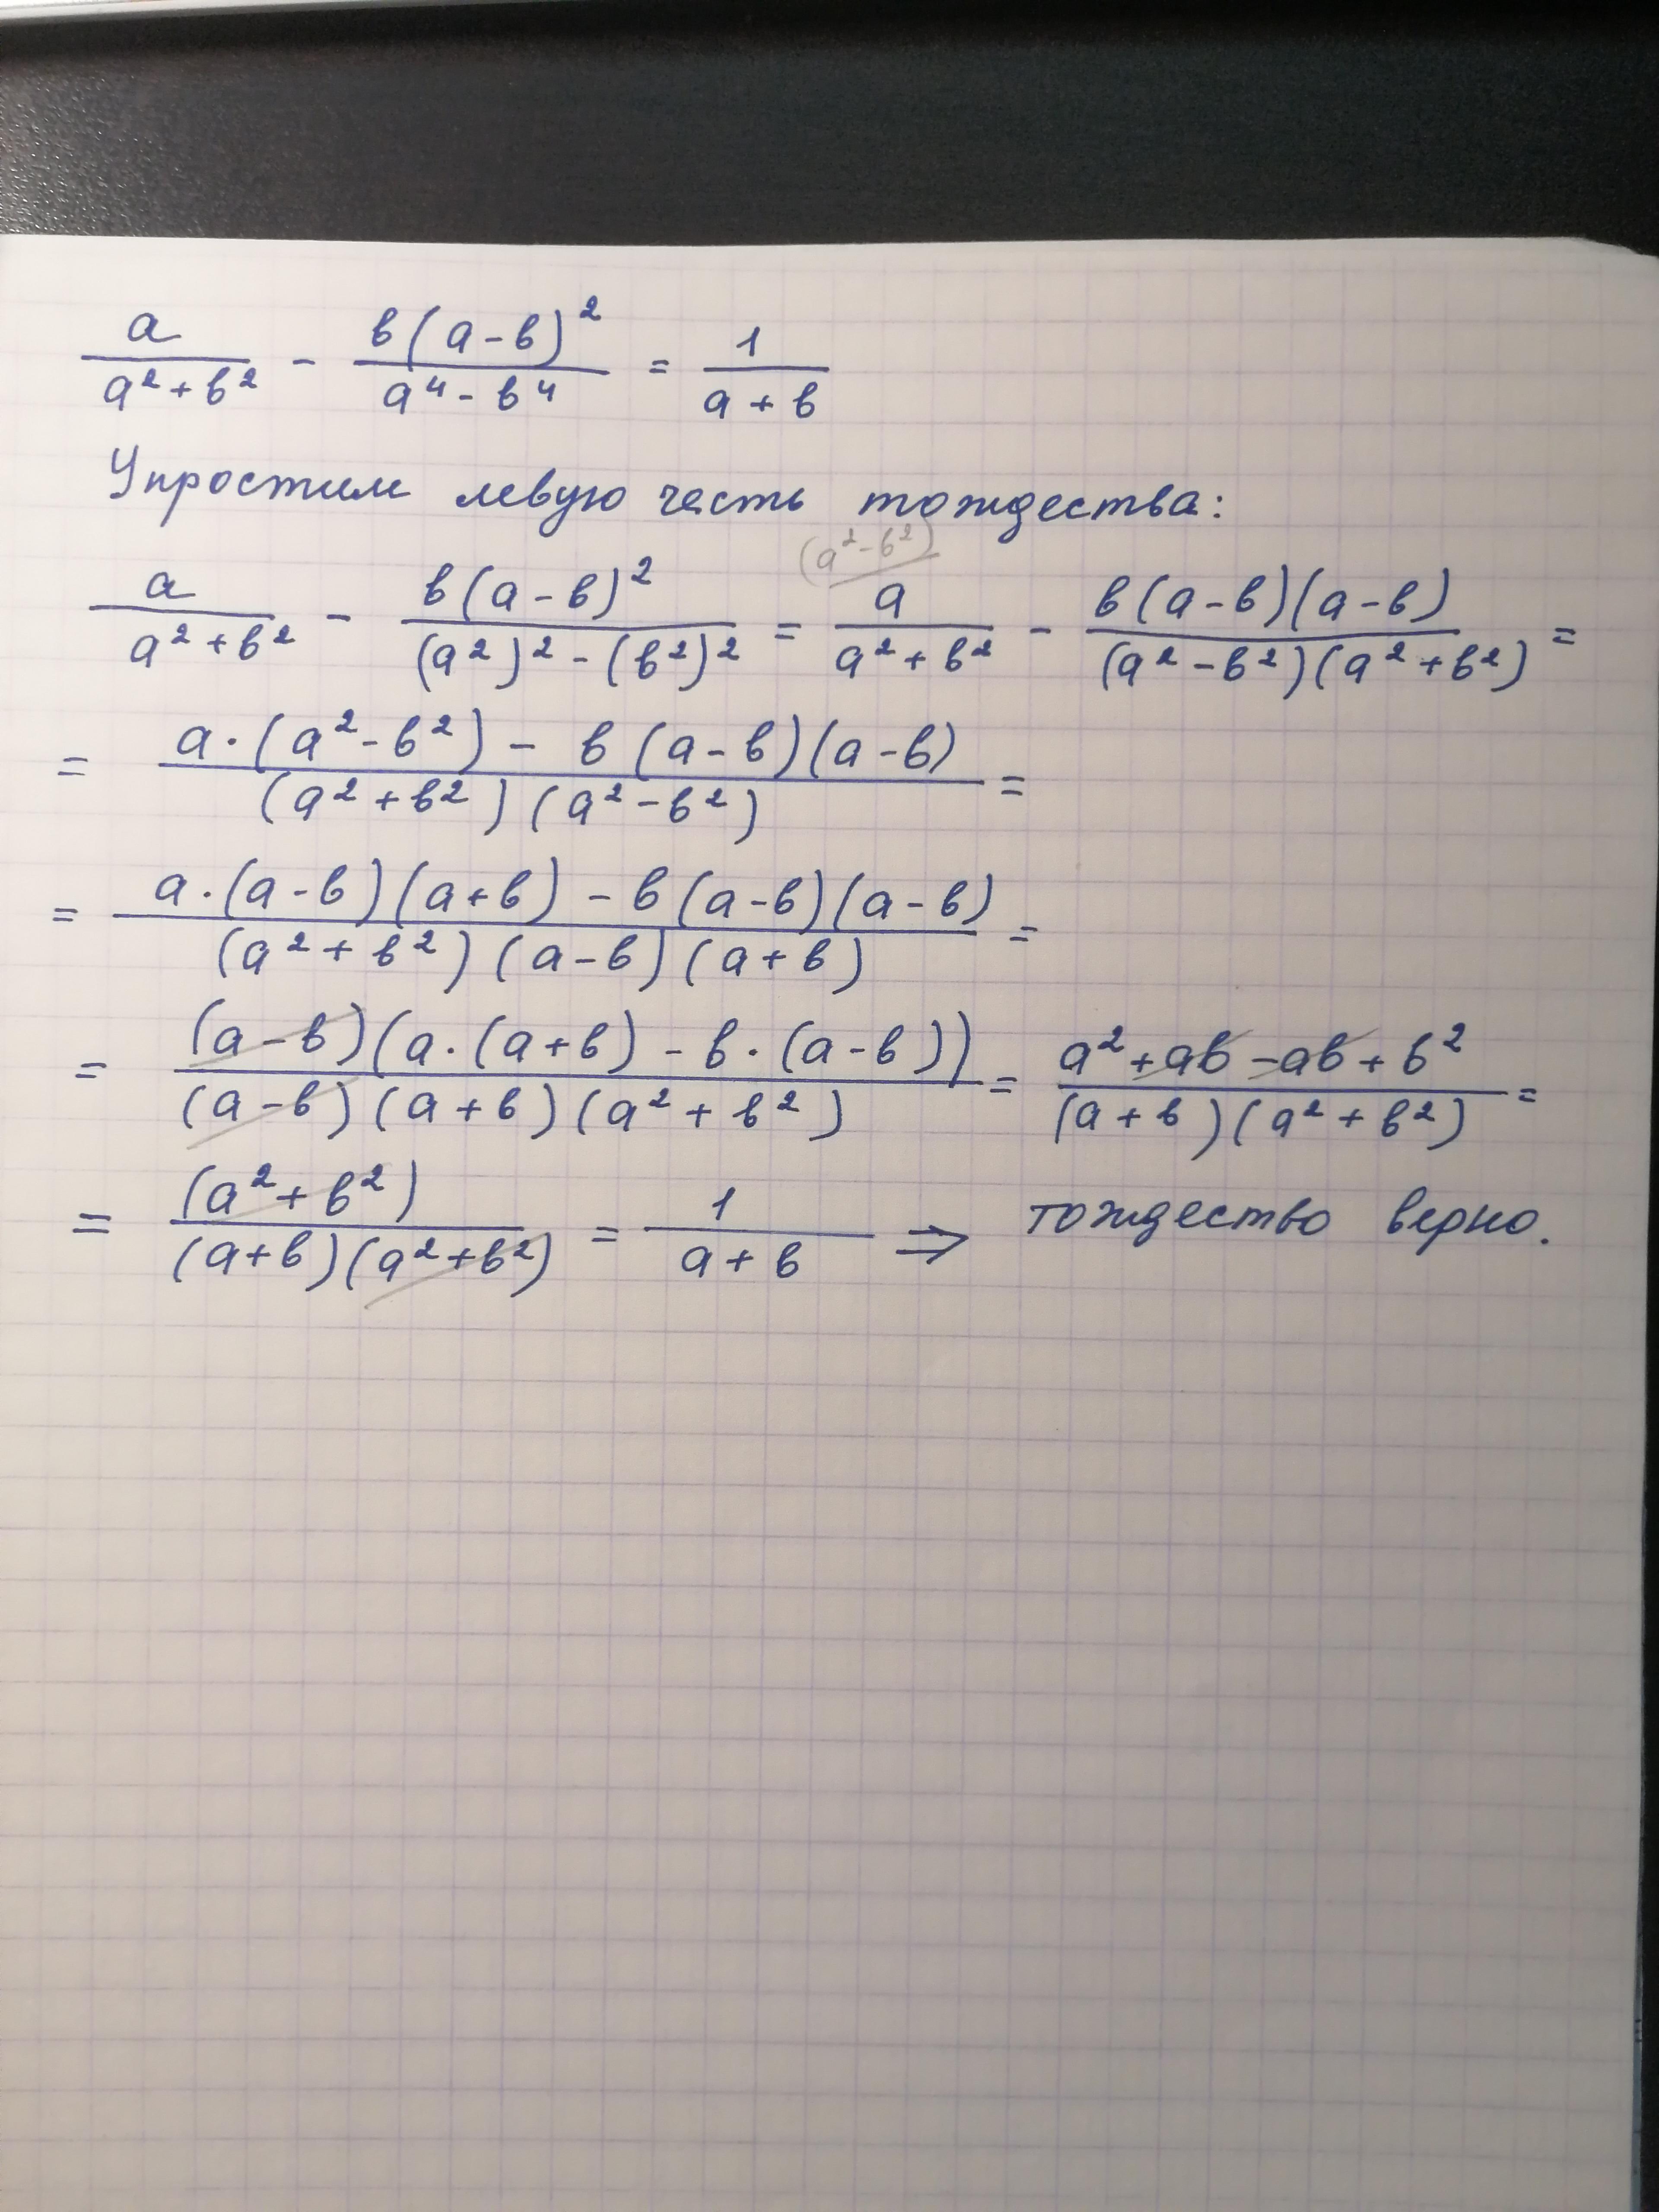 a/(a² + b²) - b(a - b)²/(a⁴ - b⁴) = 1/(a + b)
Упростим левую честь тождества:
(a² - b²)
a/(a² + b²) - b(a - b)²/((a²)² - (b²)²) = a/(a² + b²) - b(a - b)(a - b)/((a² - b²)(a² + b²)) =
= (a · (a² - b²) - b(a - b)(a - b))/((a² + b²)(a² - b²)) =
= (a · (a - b)(a + b) - b(a - b)(a - b))/((a² + b²)(a - b)(a + b)) =
= (a - b)(a · (a + b) - b · (a - b))/((a - b)(a + b)(a² + b²)) = (a² + ab - ab + b²)/((a + b)(a² + b²)) =
= (a² + b²)/((a + b)(a² + b²)) = 1/(a + b) ⇒ тождество верно.